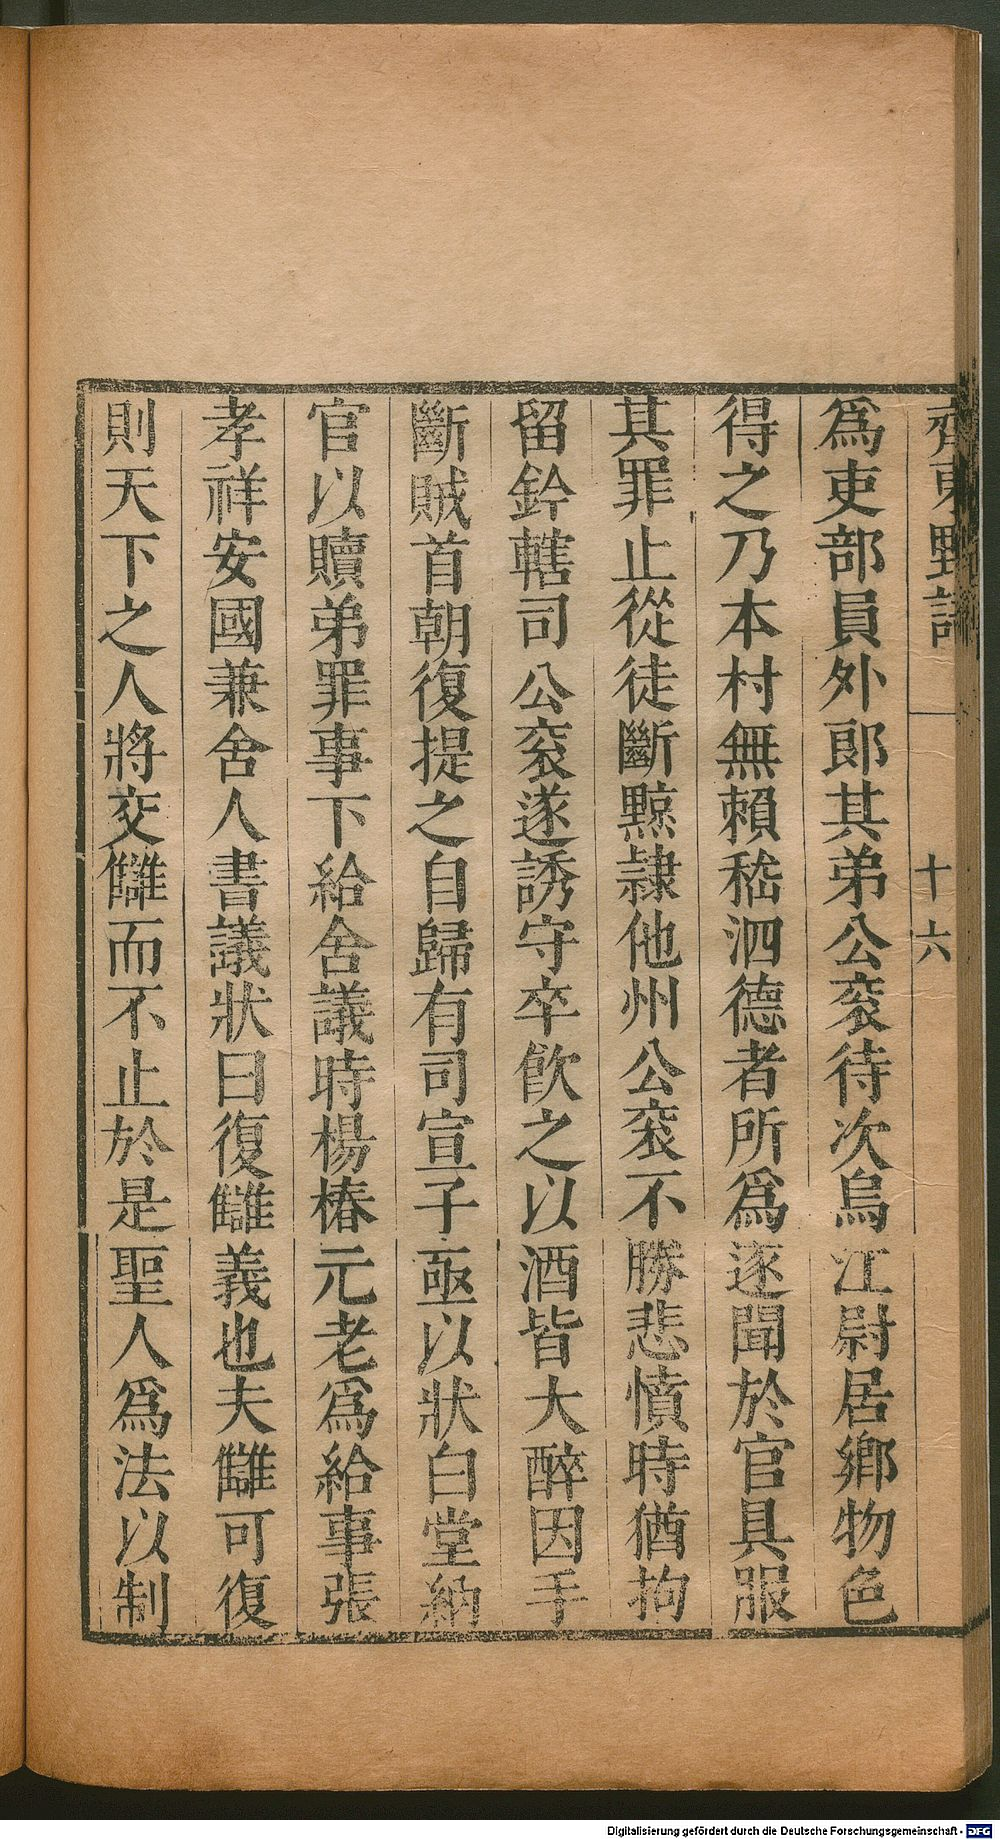 齊東野語
十六
爲吏部員外郎其弟公衮待次烏江尉居鄉物色
得之乃本村無賴嵇泗德者所爲逐聞於官具服
其罪止從徒斷黥隷他州公衮不勝悲憤時猶拘
留鈐轄司公衮遂誘守卒飮之以酒皆大醉因手
斷賊首朝復提之自歸有司宣子亟以狀白堂納
官以贖弟罪事下給舍議時楊椿元老爲給事張
孝祥安國兼舍人書議狀曰復讎義也夫讎可復
則天下之人將交讎而不止於是聖人爲法以制
Digitalisierung gefördert durch die Deutsche Forschungsgemeinschaft - DFG